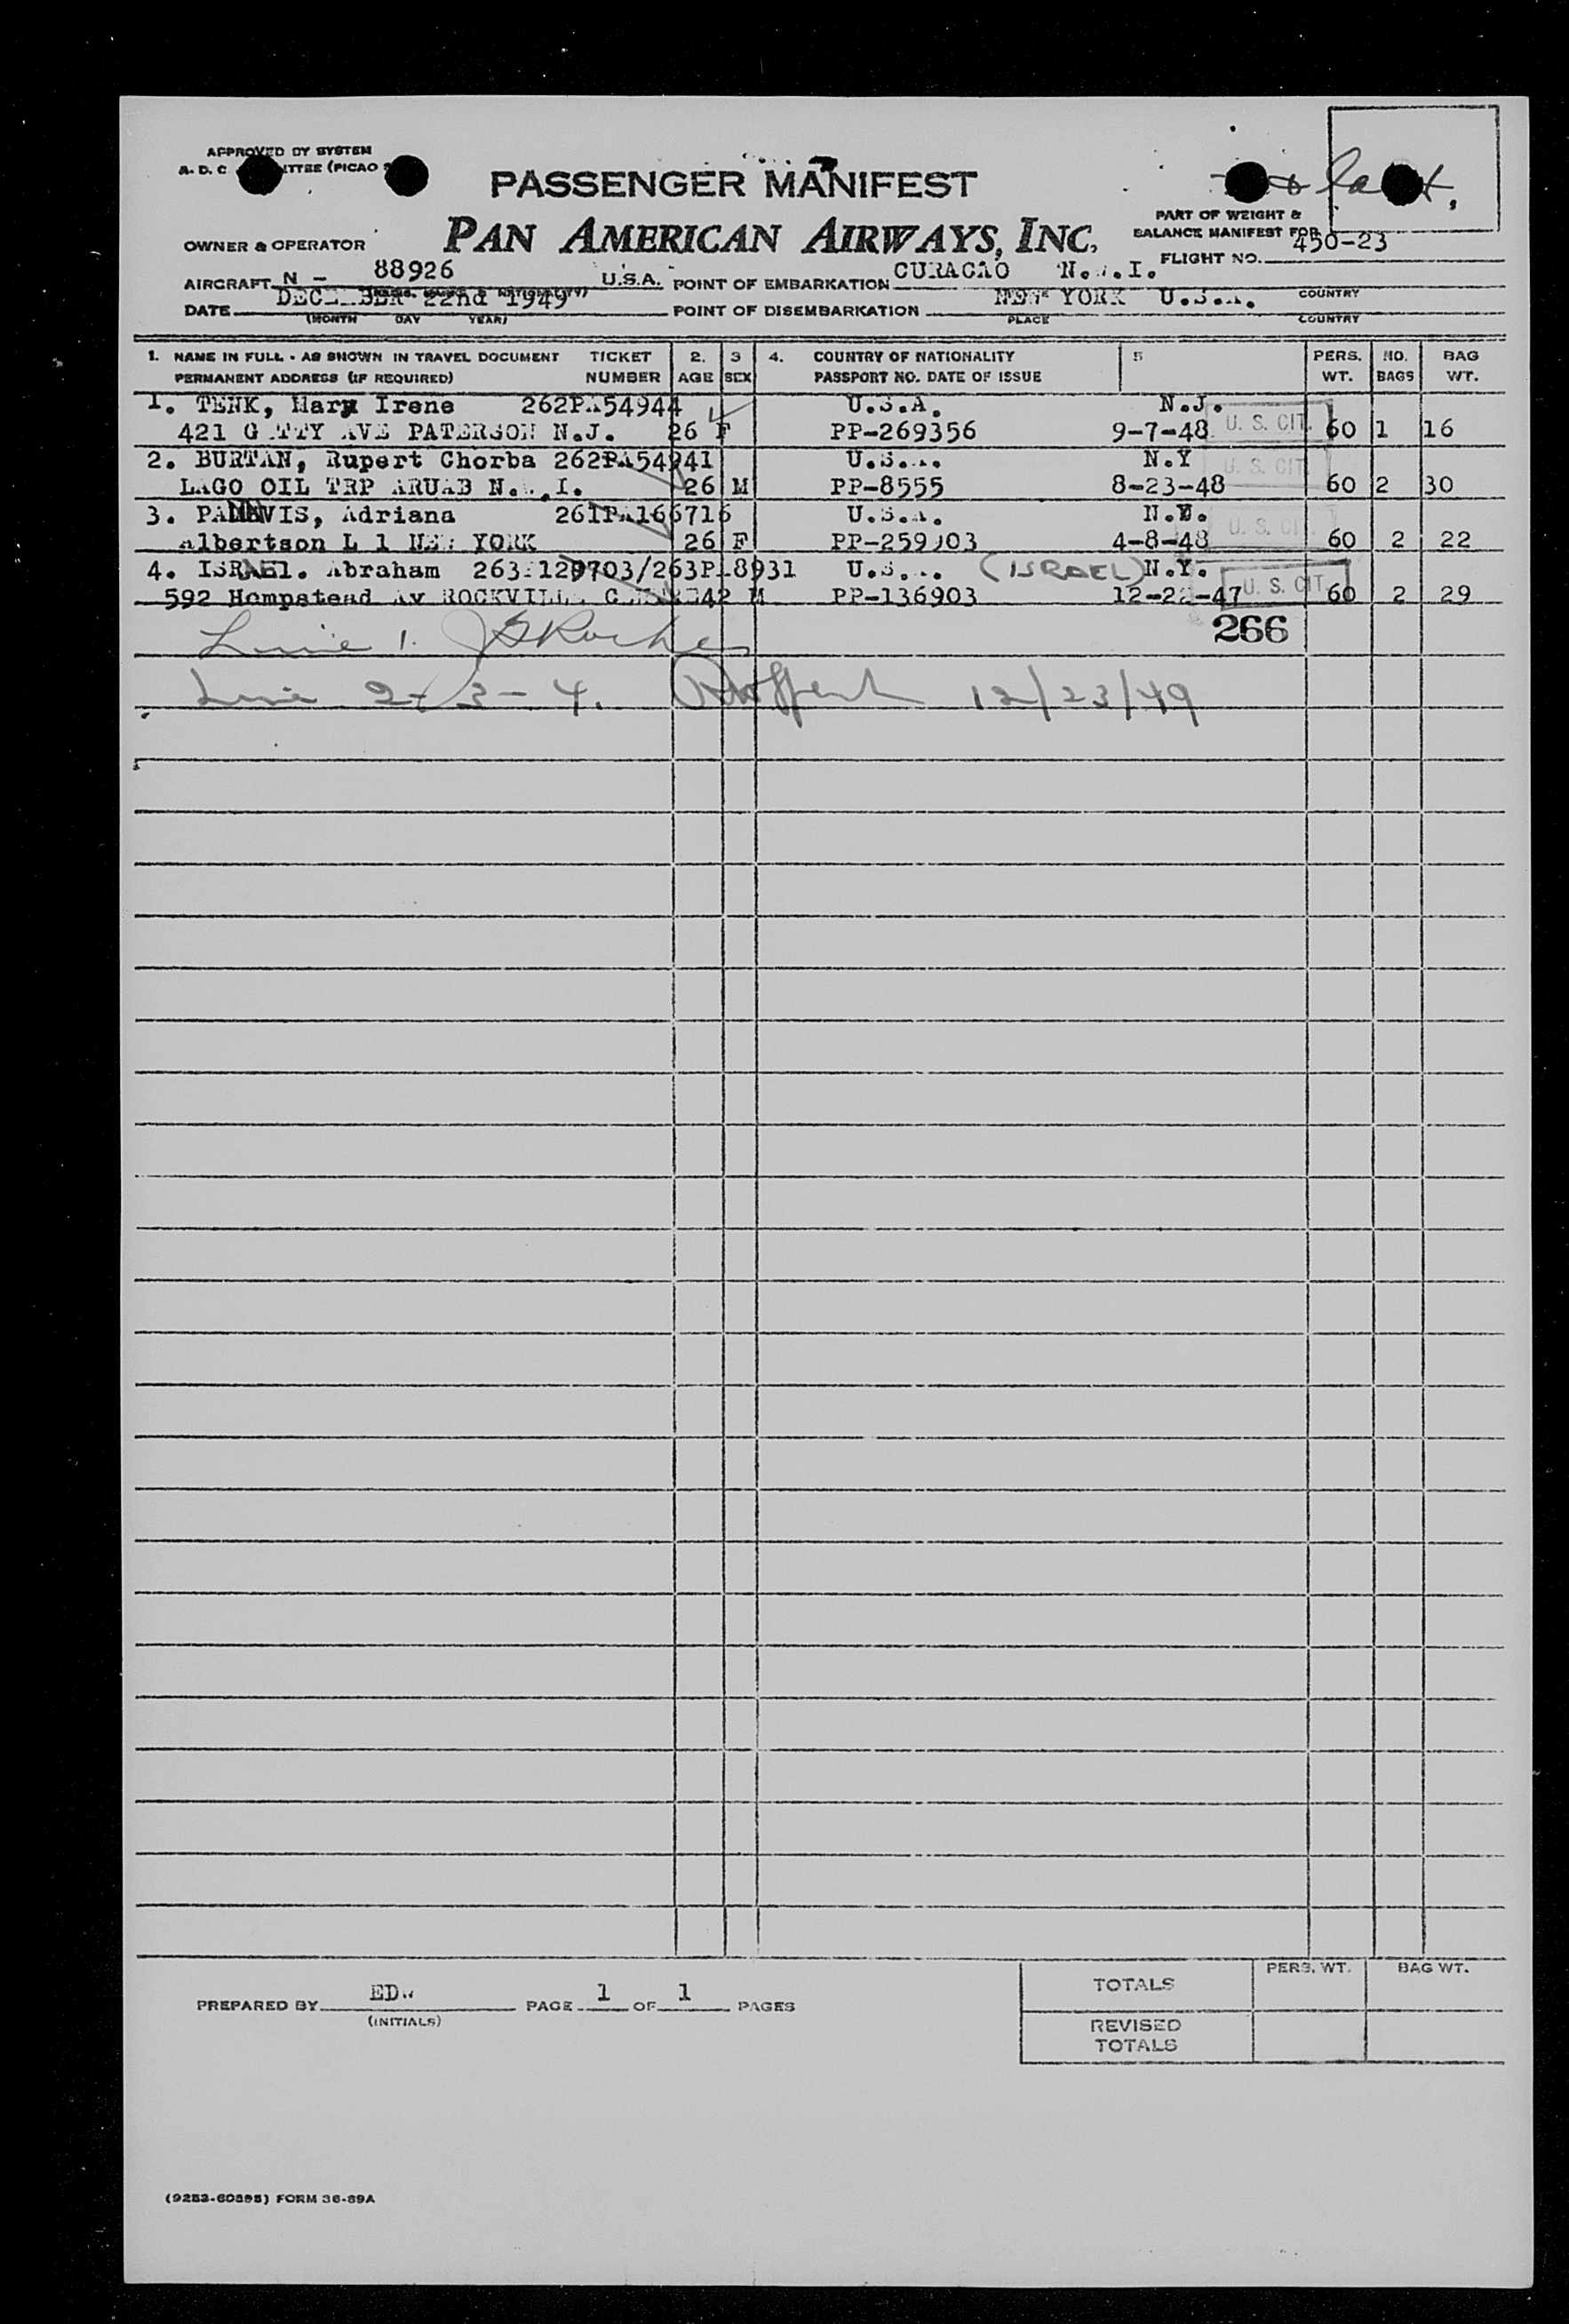 APPROVED BY SYSTEM
A. D. C (PICAO
PASSENGER MANIFEST
PAN AMERICAN AIRWAYS, INC.
PART OF WEIGHT &
BALANCE MANIFEST FOR
FLIGHT NO. 450-23
OWNER & OPERATOR
AIRCRAFT N - 88926 U.S.A. POINT OF EMBARKATION CURACAO
COUNTRY
DATE 22nd 1949 POINT OF DISEMBARKATION NEW YORK
(MONTH DAY YEAR) PLACE COUNTRY
1. NAME IN FULL - AS SHOWN IN TRAVEL DOCUMENT TICKET 2. 3 4. COUNTRY OF NATIONALITY 5 PERS. NO. BAG
PERMANENT ADDRESS (IF REQUIRED) NUMBER AGE SEX PASSPORT NO. DATE OF ISSUE WT. BAGS WT.
1. TENK, Mary Irene 262PA54944 U.S.A. N.J.
421 AVE PATERSON N.J. 26 F PP-269356 9-7-48 U. S. CIT. 60 1 16
2. BURTAN, Rupert Chorba 262PA54941 N.Y U. S. CIT.
LAGO OIL TRP ARUAB 26 M PP-8555 8-23-48 60 2 30
3. Adriana 261PA166716 U.S.A.
Albertson L 1 NEW YORK 26 F 4-8-48 U. S. CIT. 60 2 22
4. ISRAEl. Abraham (ISRAEL) N.Y.
592 Hempstead Av 42 M PP-136903 U. S. CIT. 60 2 29
Line 1. 266
Line 2-3-4. 12/23/49
PREPARED BY PAGE 1 OF 1 PAGES
(INITIALS)
PERS. WT. BAG WT.
TOTALS
REVISED
TOTALS
FORM 36-89A